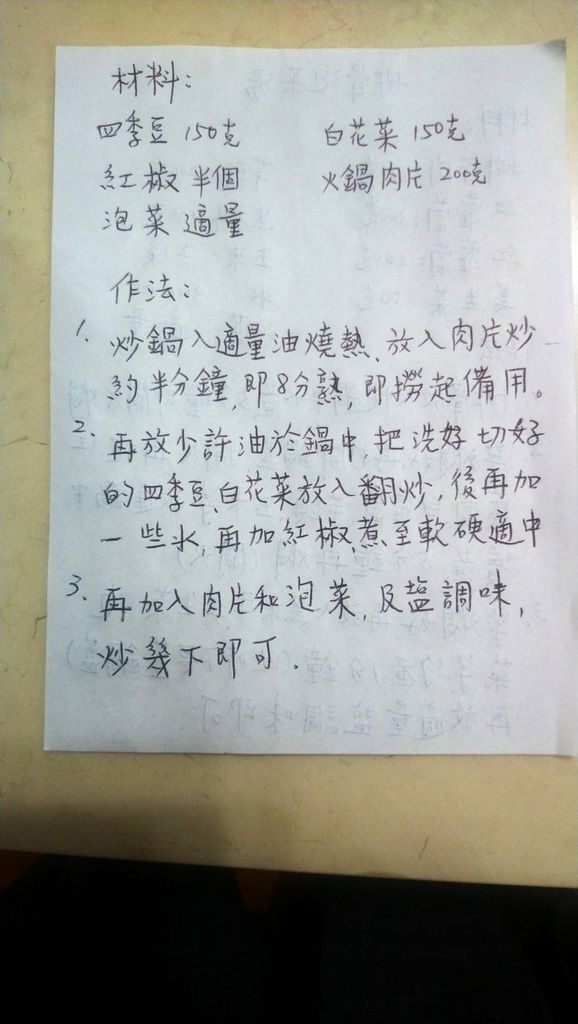 材料:
四季豆 150克 白花菜 150克
紅椒 半個 火鍋肉片 200克
泡菜 適量
作法:
1. 炒鍋入適量油燒熱、放入肉片炒
約半分鐘,即8分熟,即撈起備用。
2. 再放少許油於鍋中,把洗好切好
的四季豆、白花菜放入翻炒,後再加
一些水,再加紅椒,煮至軟硬適中
3. 再加入肉片和泡菜,及塩調味,
炒幾下即可.